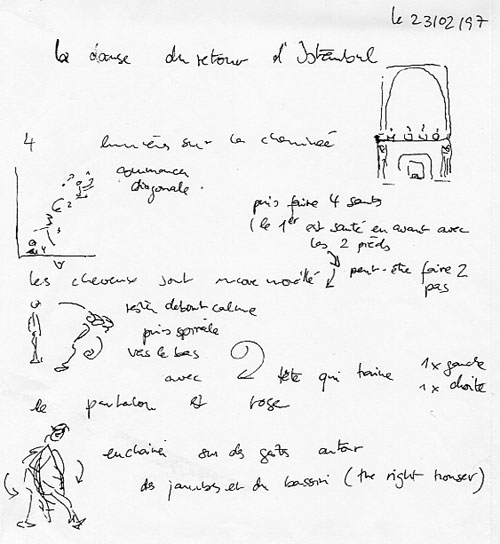 le 23/02/97
la danse du retour d'Istanbul
4 lumières sur la cheminée
commencer
diagonale.
puis faire 4 sauts
(le 1er est sauté en avant avec
les 2 pieds
peut-être faire 2
pas
les cheveux sont mouillé
rester debout calme
puis spirale
vers le bas
avec tête qui traine
1x gauche
1x droite
le pantalon est rose
enchainer sur des gestes autour
des jambes et du bassin (the right trouser)